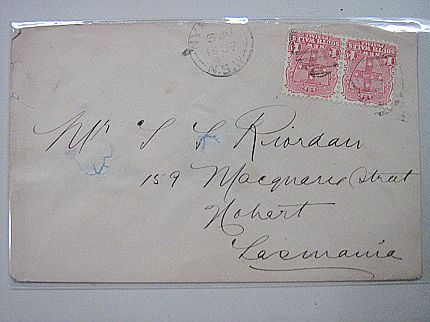 N.S.W
Mr S S Riordan
159 Macquarie Street
Hobart
Tasmania